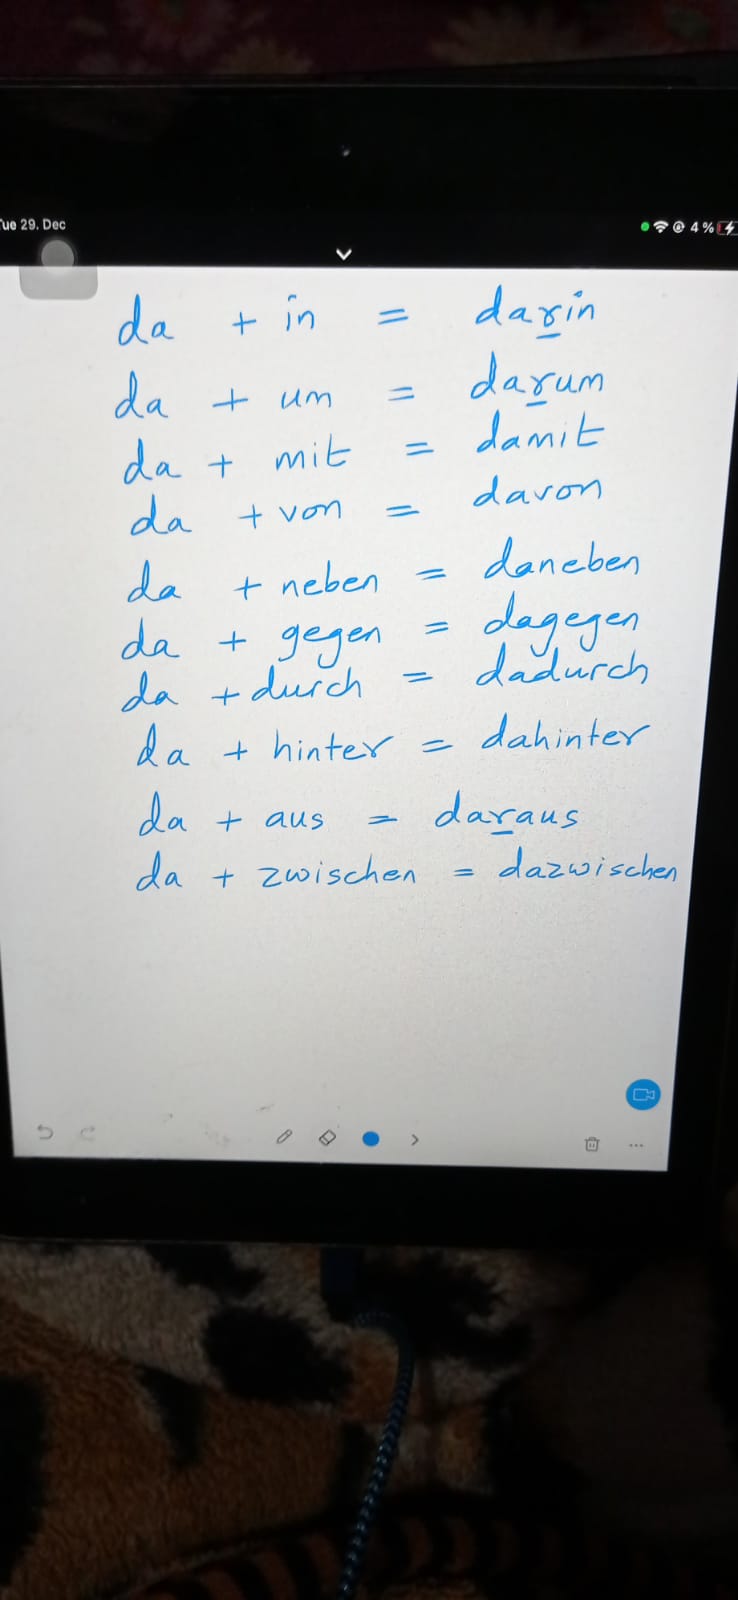 Tue 29. Dec 4%
da + in = darin
da + um = darum
da + mit = damit
da + von = davon
da + neben = daneben
da + gegen = dagegen
da + durch = dadurch
da + hinter = dahinter
da + aus = daraus
da + zwischen = dazwischen